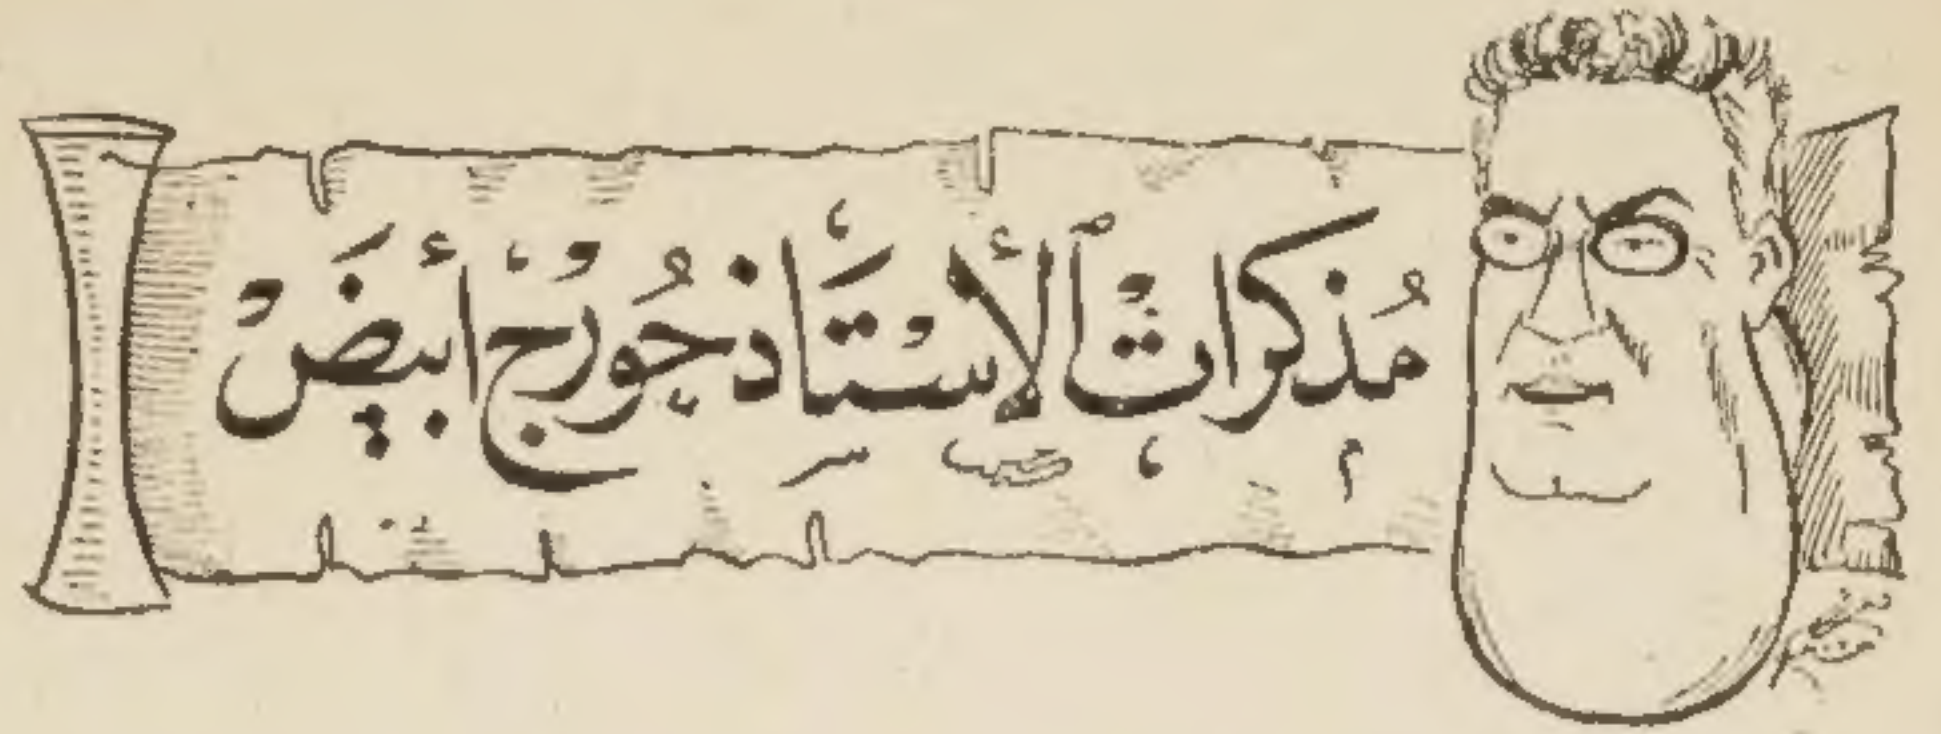 مُذكراتْ الأسْتَاذ جُورْجْ أبيَضْ